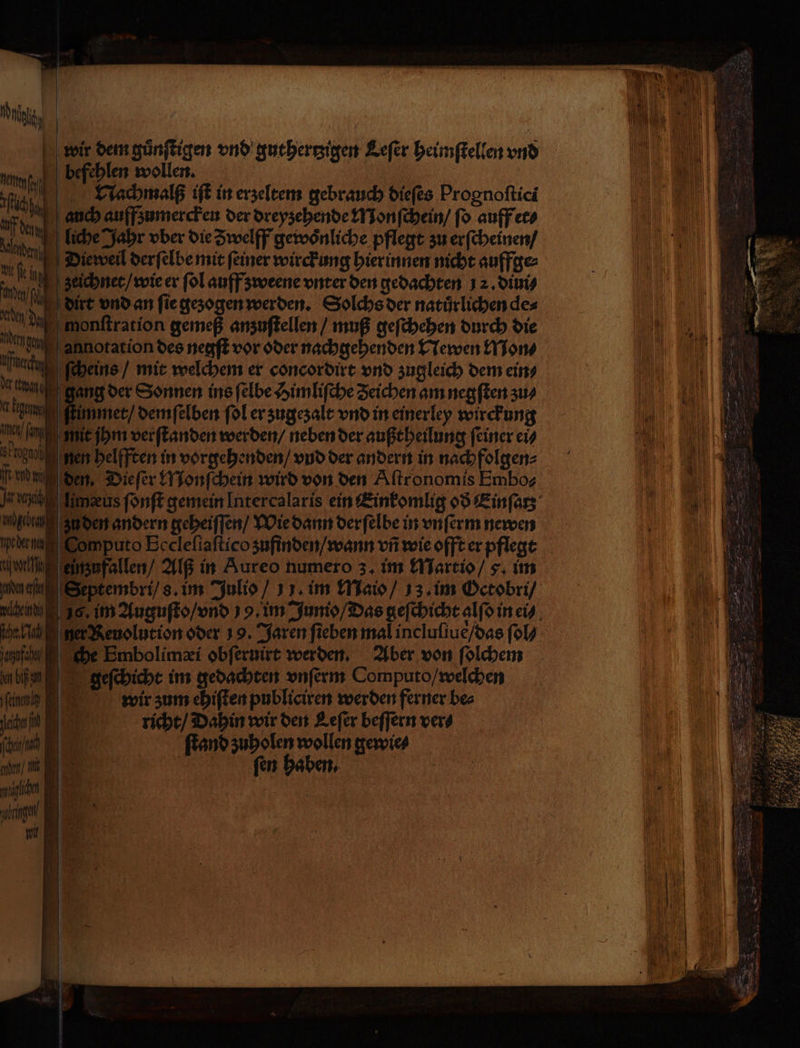 wir dem gůnſtigen vnd guthertzigen Leſer heimſtellen vnd
befehlen wollen.
Nachmalß iſt in erzeltem gebrauch dieſes Prognoſtici
auch auffzumercken der dreyzehende Monſchein/ ſo auff et⸗
liche Jahr vber die Zwelff gewoͤnliche pflegt zu erſcheinen/
Dieweil derſelbe mit ſeiner wirckung hierinnen nicht auffge⸗
zeichnet/ wie er ſol auff zweene vnter den gedachten 12. diui⸗
dirt vnd an ſie gezogen werden. Solchs der natuͤrlichen de⸗
monſtration gemeß anzuſtellen / muß geſchehen durch die
annotation des negſt vor oder nachgehenden Newen Mon⸗
ſcheins / mit welchem er concordirt vnd zugleich dem ein⸗
gang der Sonnen ins ſelbe Himliſche Zeichen am negſten zu⸗
ſtimmet/ demſelben ſol er zugezalt vnd in einerley wirckung
mit jhm verſtanden werden/ neben der außtheilung ſeiner ei⸗
nen helfften in vorgehenden/ vnd der andern in nachfolgen⸗
den. Dieſer Monſchein wird von den Aſtronomis Embo⸗
limæus ſonſt gemein Intercalaris ein Einkomlig oď Einſatz
zu den andern geheiſſen/ Wie dann derſelbe in vnſerm newen
Computo Eccleſiaſtico zufinden/ wann vñ wie offt er pflegt
einzufallen/ Alß in Aureo numero 3. im Martio / 5. im
Septembri/ 8. im Julio / 11. im Maio / 13. im Octobri/
16. im Auguſto/ vnd 19. im Junio/ Das geſchicht alſo in ei⸗
ner Reuolution oder 19. Jaren ſieben mal incluſiuè/ das ſol⸗
che Embolimæi obſeruirt werden. Aber von ſolchem
geſchicht im gedachten vnſerm Computo/ welchen
wir zum ehiſten publiciren werden ferner be⸗
richt/ Dahin wir den Leſer beſſern ver⸗
ſtand zuholen wollen gewie⸗
ſen haben.